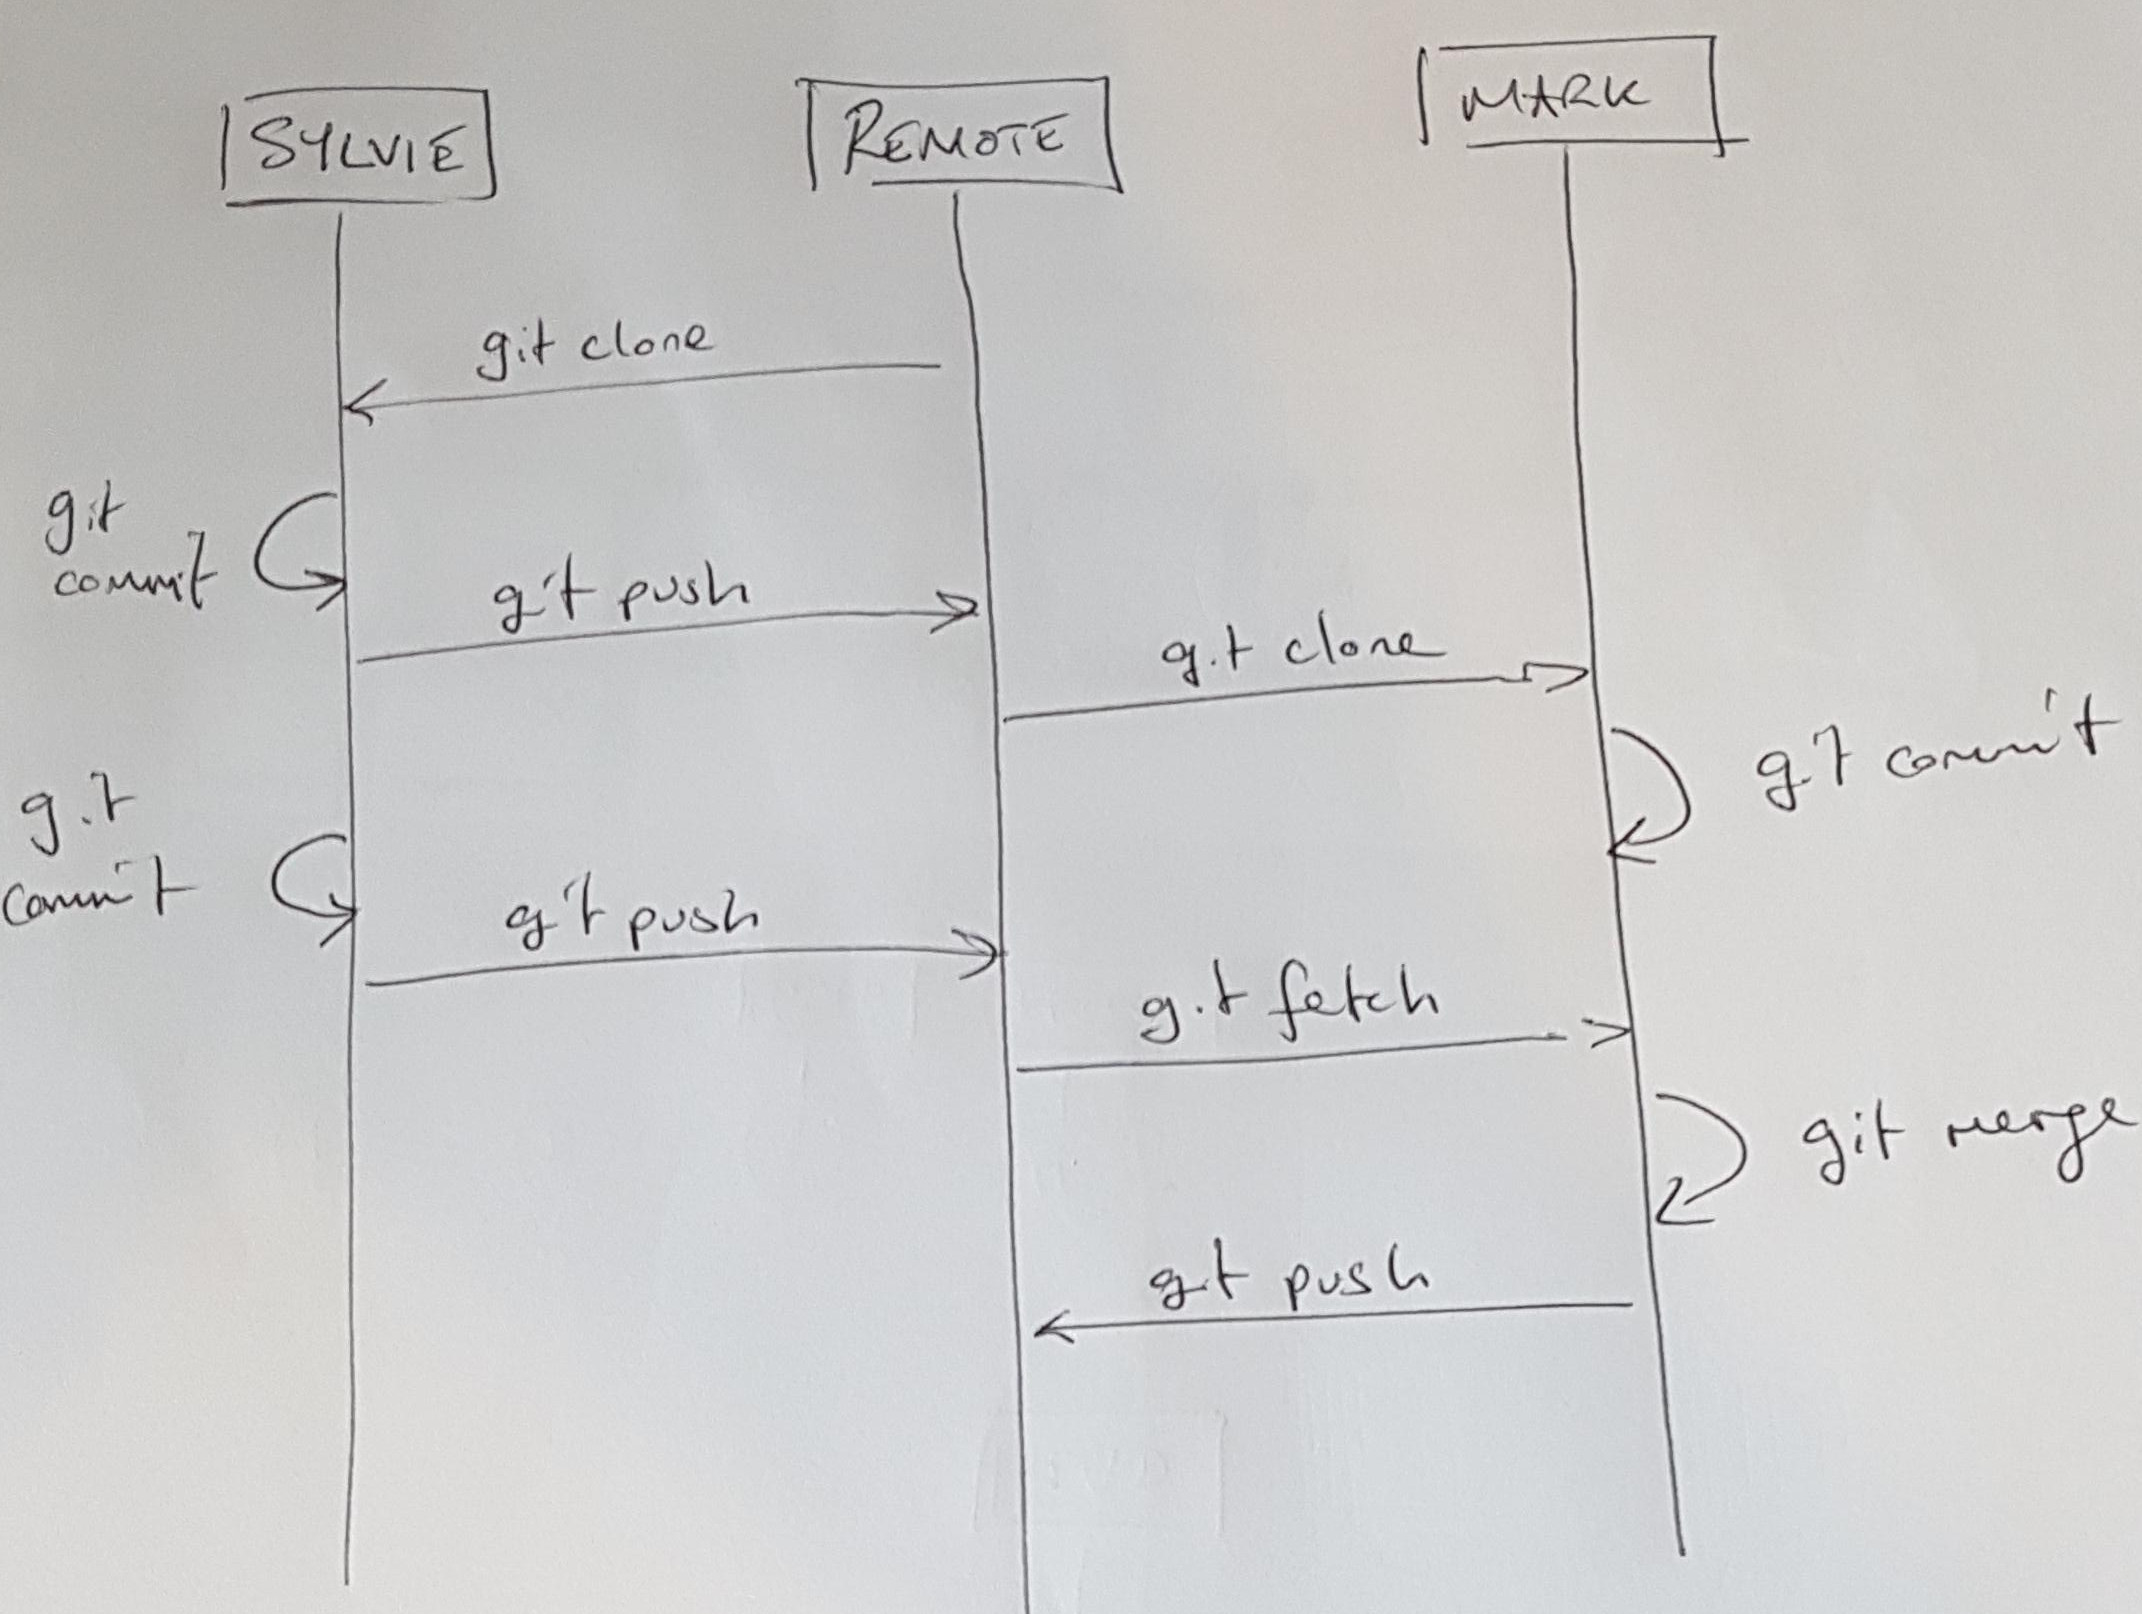 SYLVIE
REMOTE
MARK
git clone
git
commit
git push
git clone
git commit
git
commit
git push
git fetch
git merge
git push